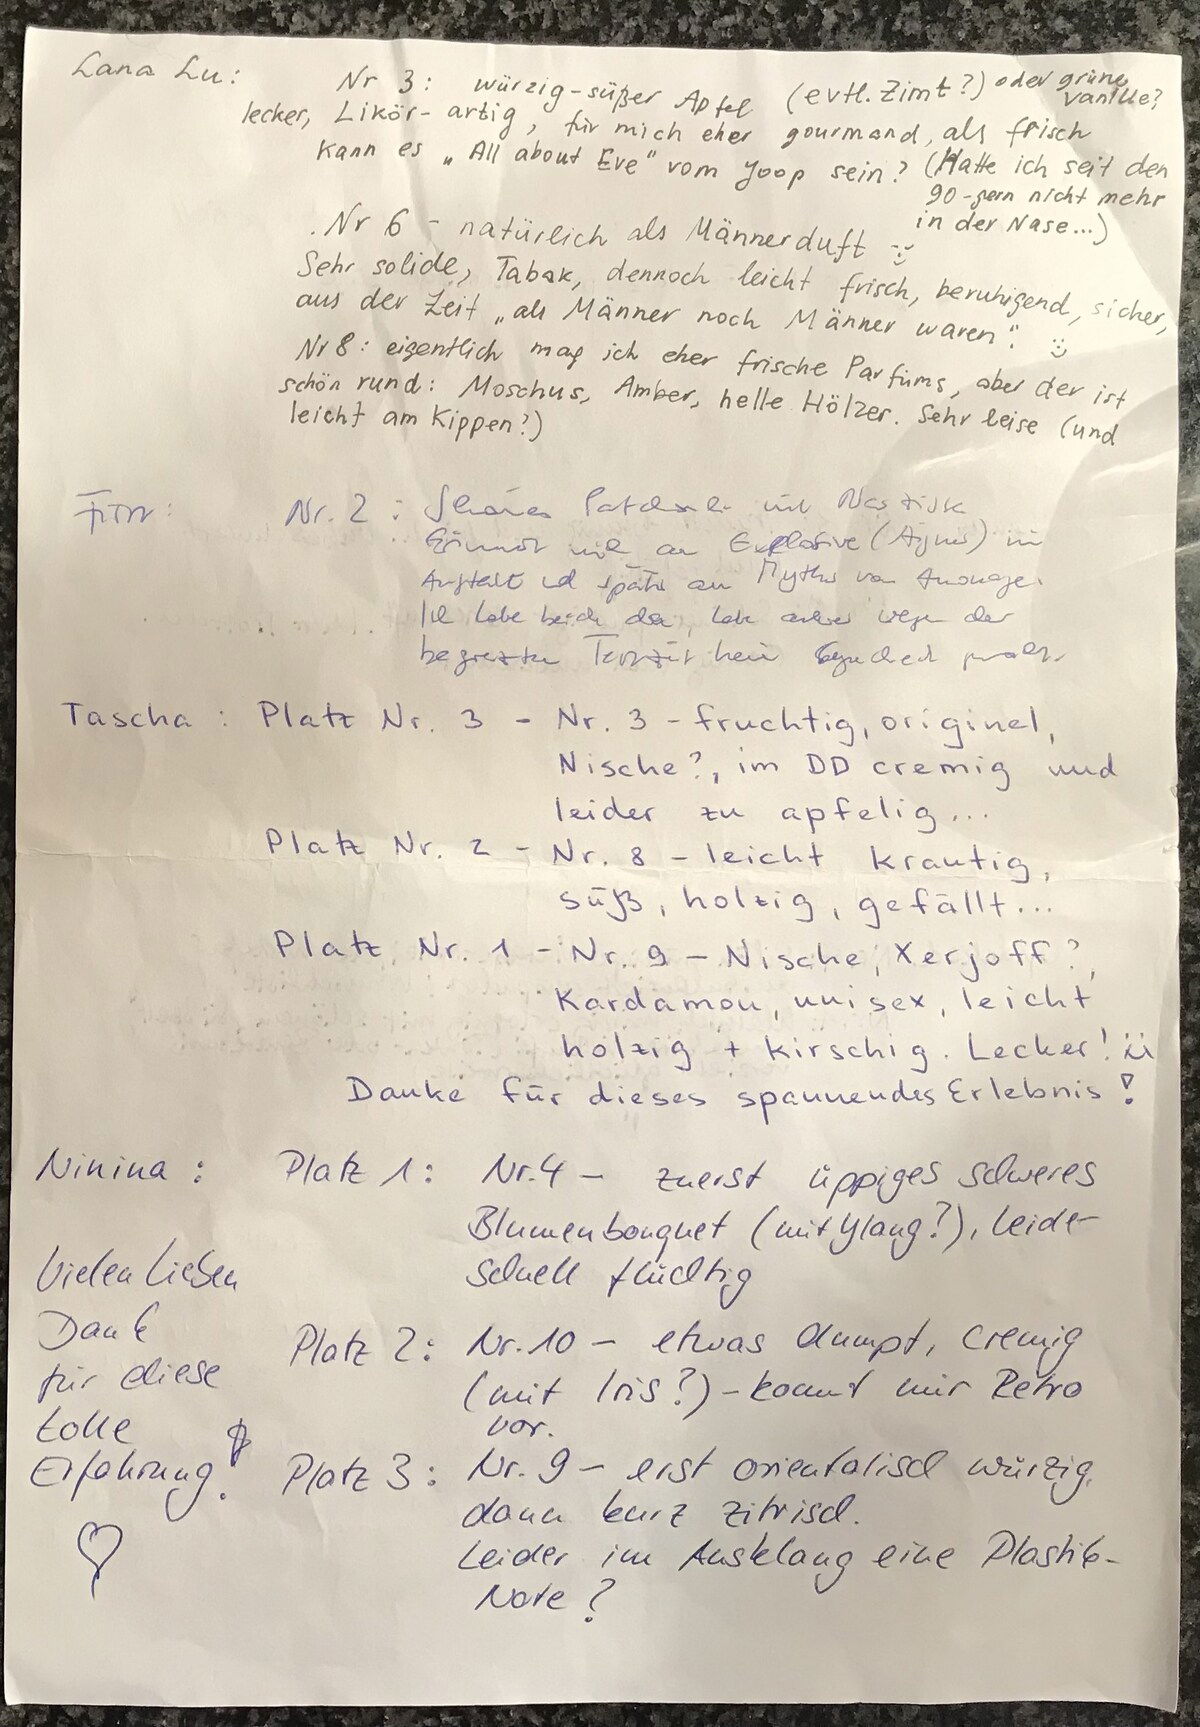 Lana Lu:
Nr 3: würzig-süßer Apfel (evtl. Zimt?) oder grüne Vanille?
lecker, Likör-artig, für mich eher gourmand, als frisch
kann es „All about Eve" vom Joop sein? (Hatte ich seit den
90-gern nicht mehr
in der Nase...)
Nr 6 - natürlich als Männerduft
Sehr solide, Tabak, dennoch leicht frisch, beruhigend, sicher,
aus der Zeit „als Männer noch Männer waren".
Nr 8: eigentlich mag ich eher frische Parfums, aber der ist
schön rund: Moschus, Amber, helle Hölzer. Sehr leise (und
leicht am Kippen?)
Nr. 2:
Explosive (Aigner) im
Auftakt und später an Myths von Amouage.
Ich habe beide da, habe aber wegen der
begrenzten Testzeit kein
Tascha: Platz Nr. 3 - Nr. 3 - fruchtig, originel,
Nische?, im DD cremig und
leider zu apfelig...
Platz Nr. 2 - Nr. 8 - leicht krautig,
süß, holzig, gefällt...
Platz Nr. 1 - Nr. 9 - Nische, Xerjoff?,
Kardamon, unisex, leicht
holzig + kirschig. Lecker!
Danke für dieses spannendes Erlebnis!
Ninina: Platz 1: Nr. 4 - zuerst üppiges schweres
Blumenbouquet (mit Ylang?), leider
schnell flüchtig
Vielen lieben
Dank
für diese
tolle
Erfahrung!
Platz 2: Nr. 10 - etwas dumpf, cremig
(mit Iris?) - kommt mir Retro
vor.
Platz 3: Nr. 9 - erst orientalisch würzig,
dann kurz zitrisch.
Leider im Ausklang eine Plastik-
Note?